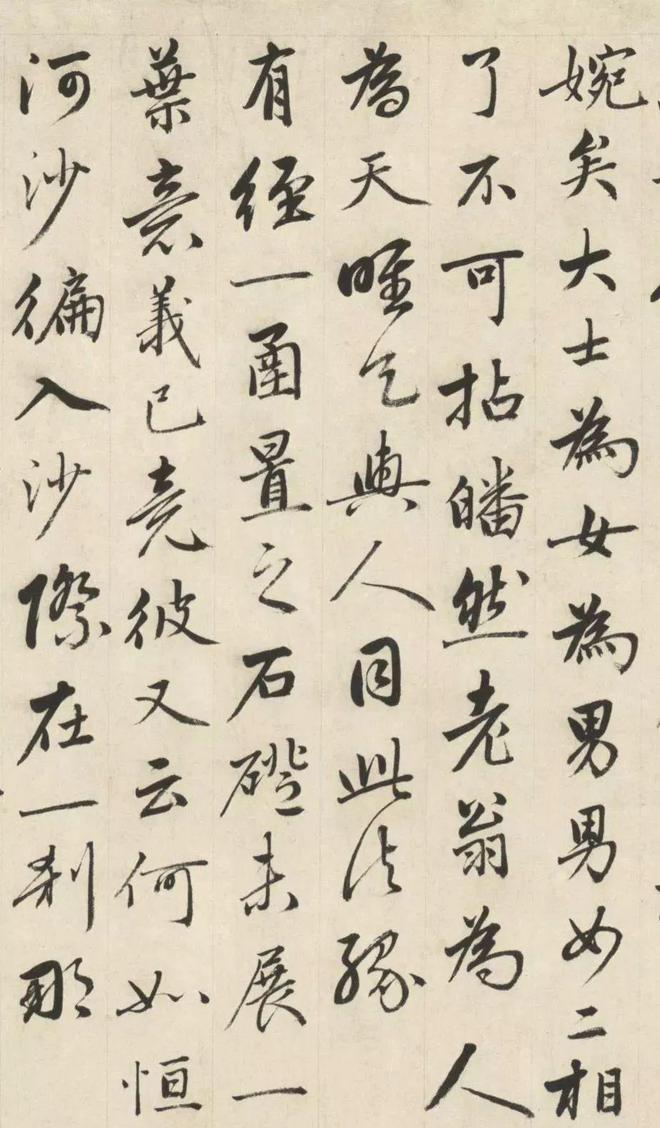 婉矣大士為女為男男女二相
了不可拈皤然老翁為人
為天唯天與人同此法緣
有經一函置之石磴未展一
葉意義已竟彼又云何如恒
河沙徧入沙際在一刹那